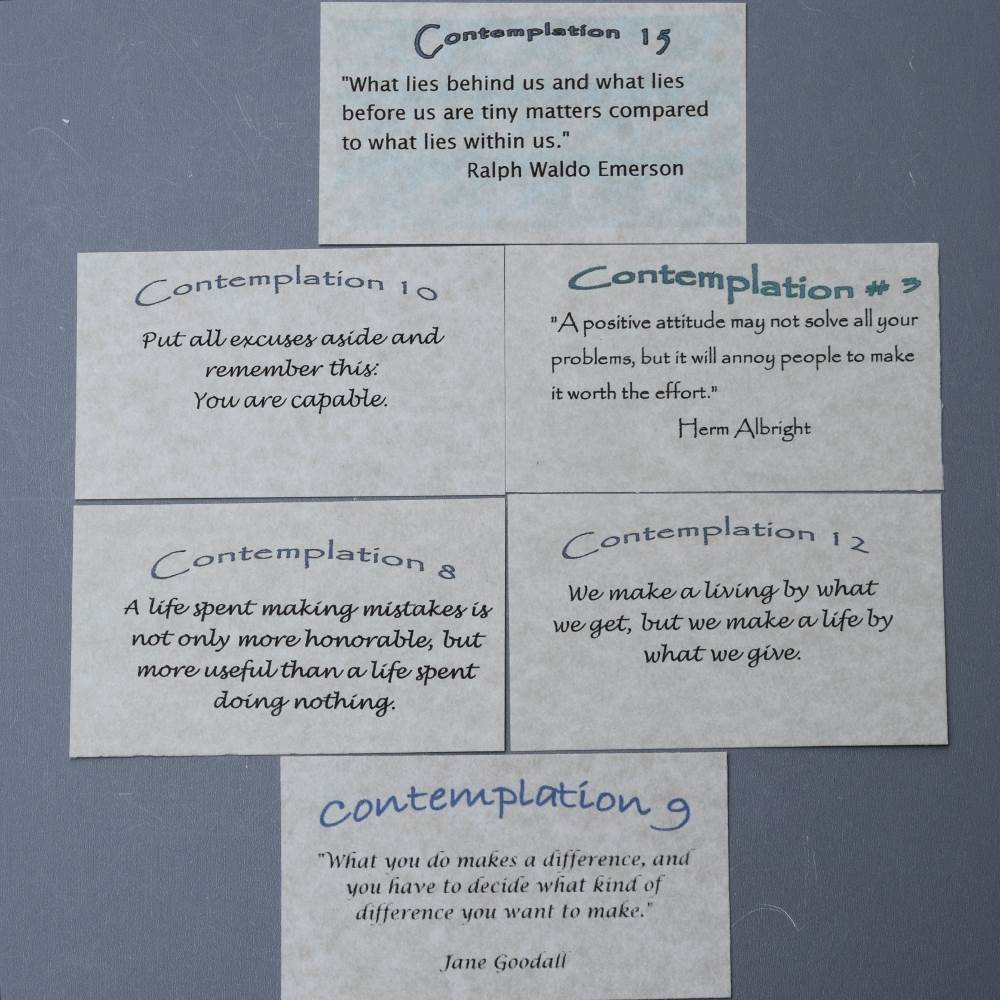 Contemplation 15
"What lies behind us and what lies
before us are tiny matters compared
to what lies within us."
Ralph Waldo Emerson
Contemplation 10
Put all excuses aside and
remember this:
You are capable.
Contemplation # 3
"A positive attitude may not solve all your
problems, but it will annoy people to make
it worth the effort."
Herm Albright
Contemplation 8
A life spent making mistakes is
not only more honorable, but
more useful than a life spent
doing nothing.
Contemplation 12
We make a living by what
we get, but we make a life by
what we give.
Contemplation 9
"What you do makes a difference, and
you have to decide what kind of
difference you want to make."
Jane Goodall